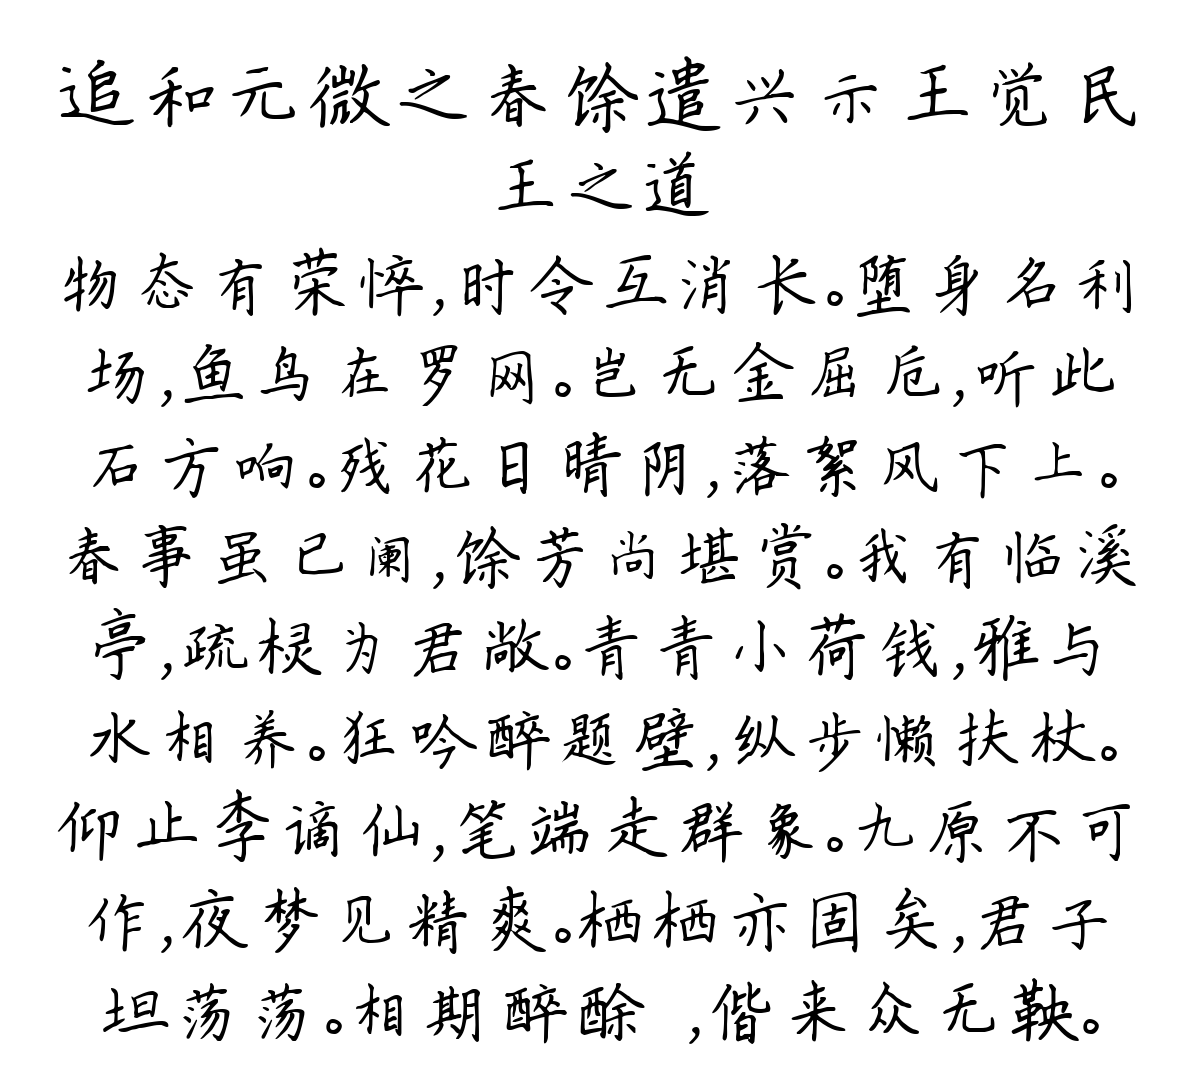 追和元微之春馀遣兴示王觉民
王之道
物态有荣悴,时令互消长。堕身名利
场,鱼鸟在罗网。岂无金屈卮,听此
石方响。残花日晴阴,落絮风下上。
春事虽已阑,馀芳尚堪赏。我有临溪
亭,疏棂为君敞。青青小荷钱,雅与
水相养。狂吟醉题壁,纵步懒扶杖。
仰止李谪仙,笔端走群象。九原不可
作,夜梦见精爽。栖栖亦固矣,君子
坦荡荡。相期醉酴 ,偕来众无鞅。